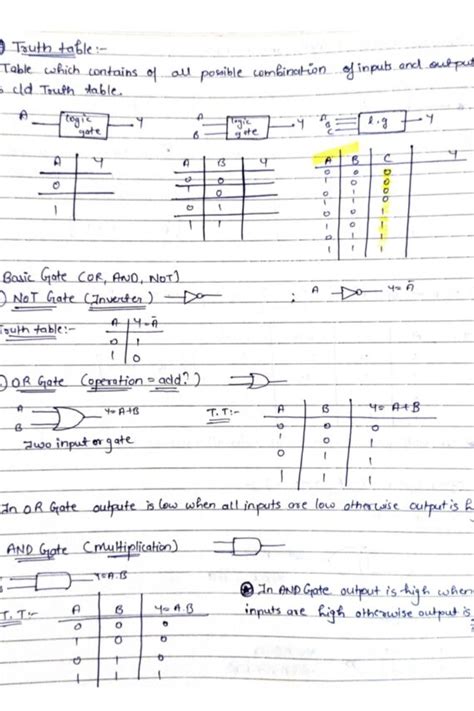 Truth table:-
Table which contains of all possible combination of inputs and output
cld Truth table.
A logic gate Y
A B logic gate Y
A B C l.g Y
A Y
0
1
A B Y
0 0
1 0
0 1
1 1
A B C Y
0 0 0
Basic Gate (OR, AND, NOT)
NOT Gate (Inverter) ; A Y= Ā
Truth table:- A Y=Ā
0 1
1 0
OR Gate (operation = add?)
A B Y=A+B
Two input or gate
T.T:- A B Y= A+B
0 0 0
1 0 1
0 1 1
1 1 1
In OR Gate outpute is low when all inputs are low otherwise output is
AND Gate (Multiplication)
Y=A.B
In AND Gate output is high when
inputs are high otherwise output is
T.T:- A B Y= A.B
0 0 0
1 0 0
0 1 0
1 1 1